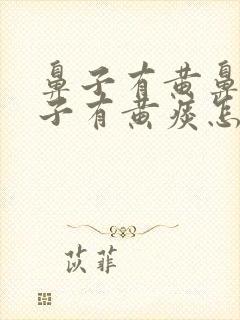 鼻子有黄鼻
子有黄痰怎
苡菲